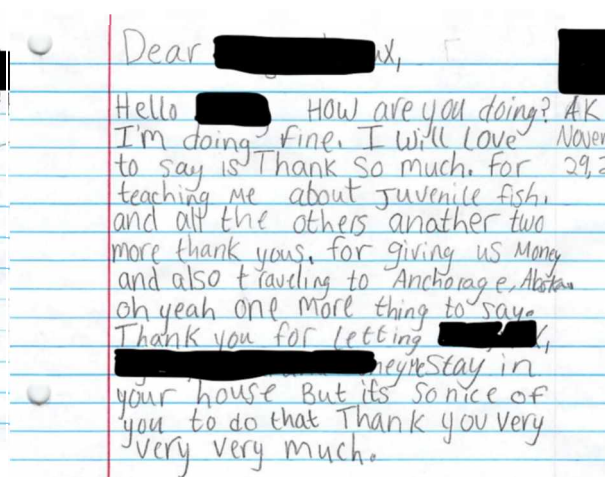 Dear
Hello How are you doing? AK
I'm doing fine. I will Love
to say is Thank so much. For
teaching me about Juvenile fish.
and all the others anather two
more thank yous. for giving us Money
and also traveling to Anchorage,
oh yeah one more thing to say.
Thank you for letting
Stay in
your house But its So nice of
you to do that Thank you very
very very much.
29,